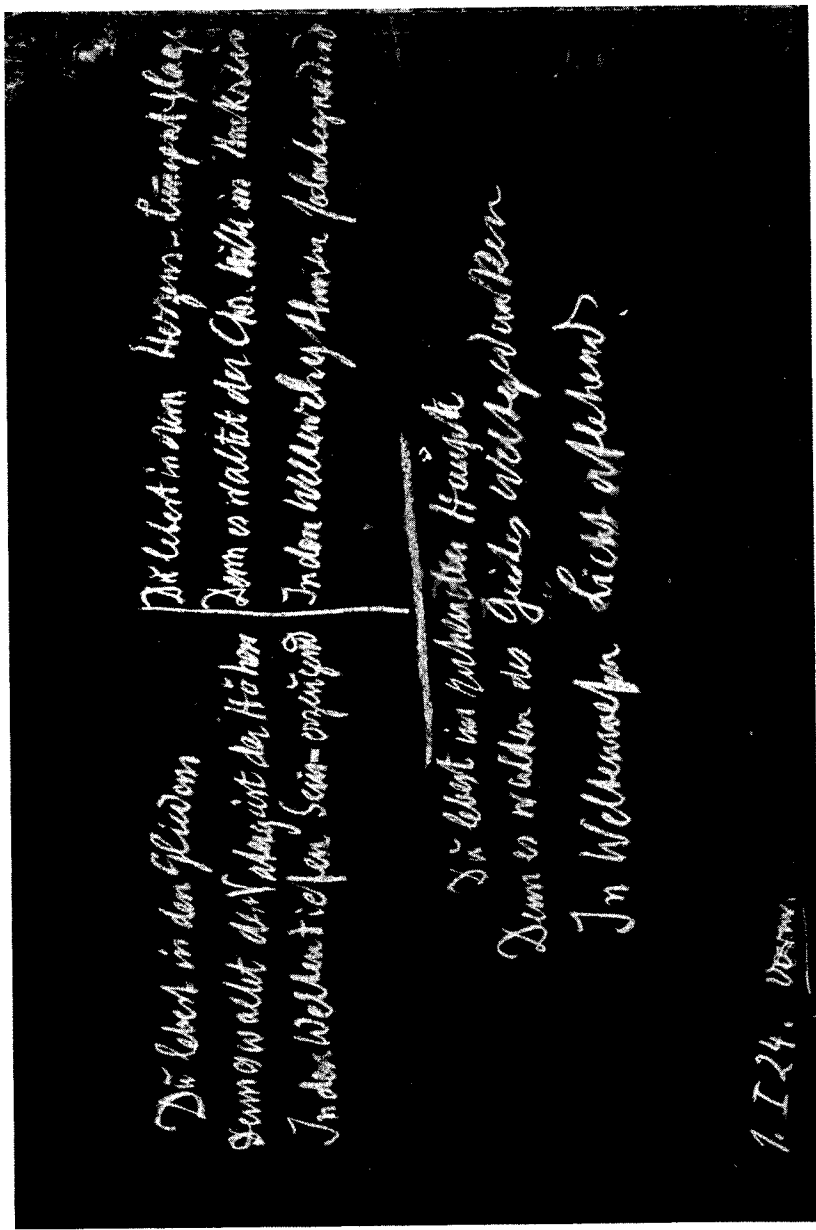 Dü lebest in den Gliedern
Denn es waltet der Vatergeist der Höhen
In den Weltentiefen Sein-erzeügend
Dü lebest in dem Herzens-Lüngenschlage
Denn es waltet der Chr. Wille im Umkreis
In den Weltenrhythmen Seelenbegnadend
Dü lebest im ruhenden Haüpte
Denn es walten des Geistes Weltgedanken
In Weltenwesen Licht erflehend,
1. I 24. Vorm.